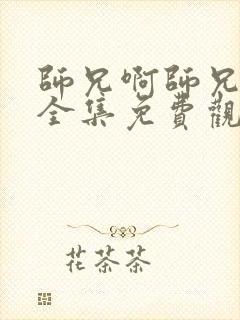 師兄啊師兄
全集免費觀
花茶茶